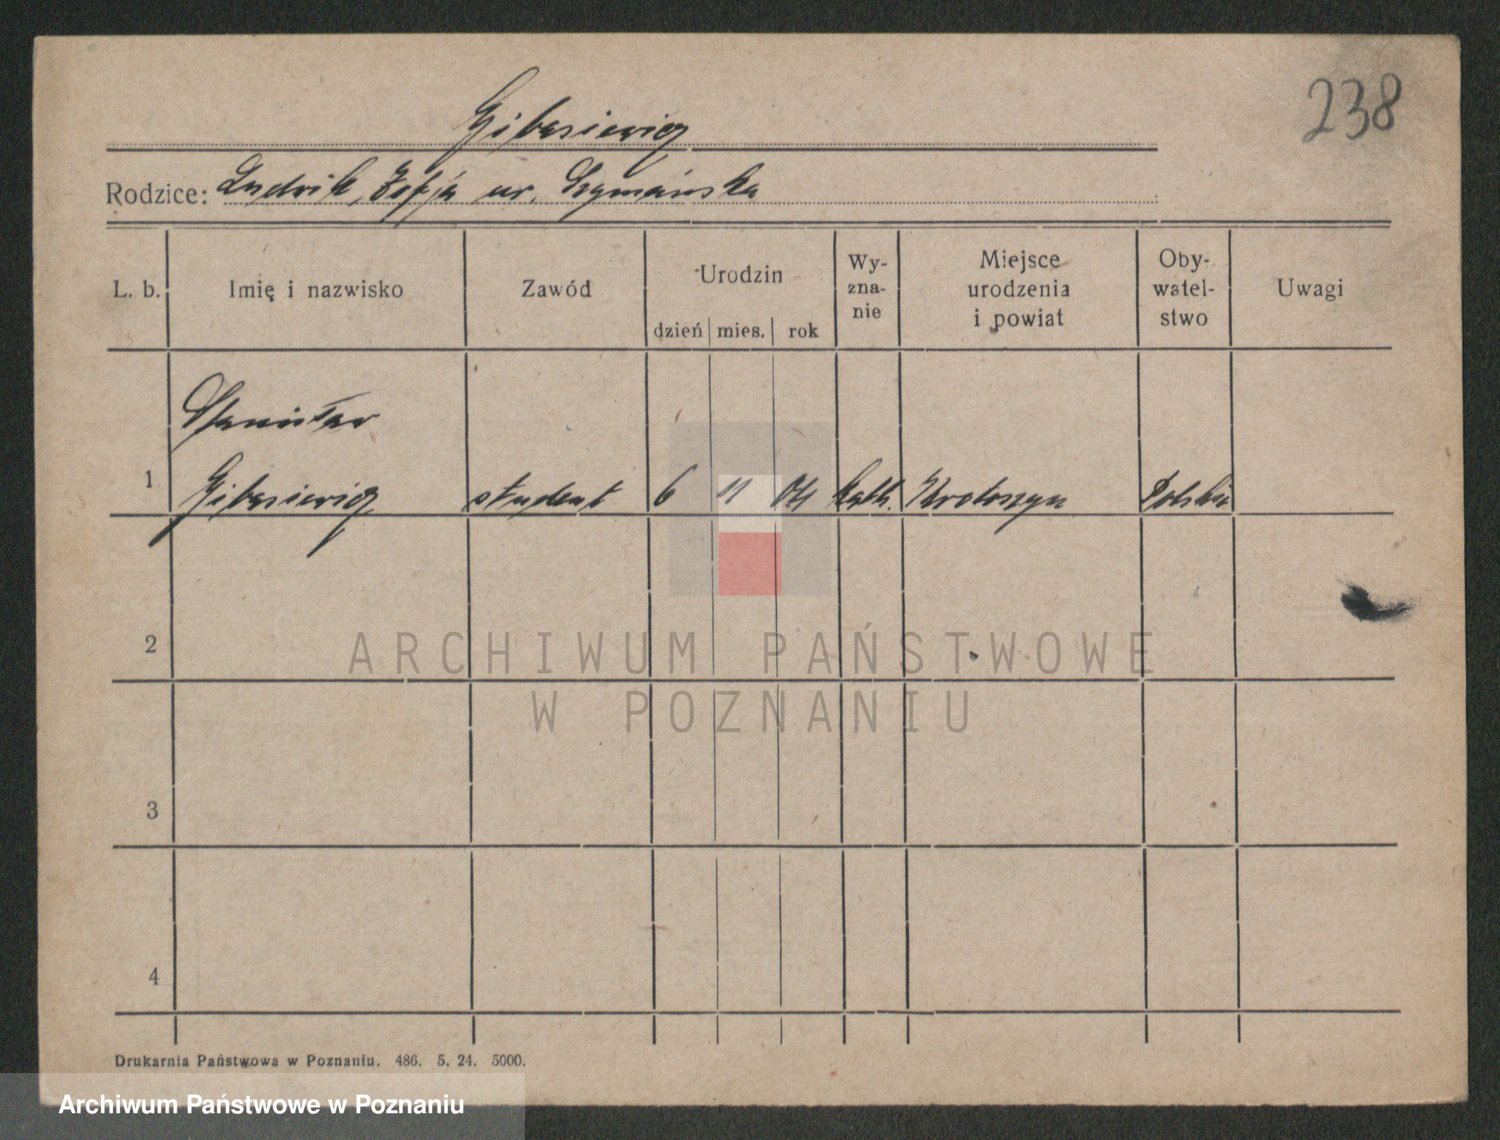 238
Gibasiewicz
Rodzice: Ludwik, Zofja ur. Szymańska
L. b. Imię i nazwisko Zawód Urodzin dzień mies. rok Wy-zna-nie Miejsce urodzenia i powiat Oby-watel-stwo Uwagi
Stanisław
1 Gibasiewicz student 6 11 04 kath. Krotoszyn Polska
2
ARCHIWUM PAŃSTWOWE
W POZNANIU
3
4
Drukarnia Państwowa w Poznaniu. 486. 5. 24. 5000.
Archiwum Państwowe w Poznaniu